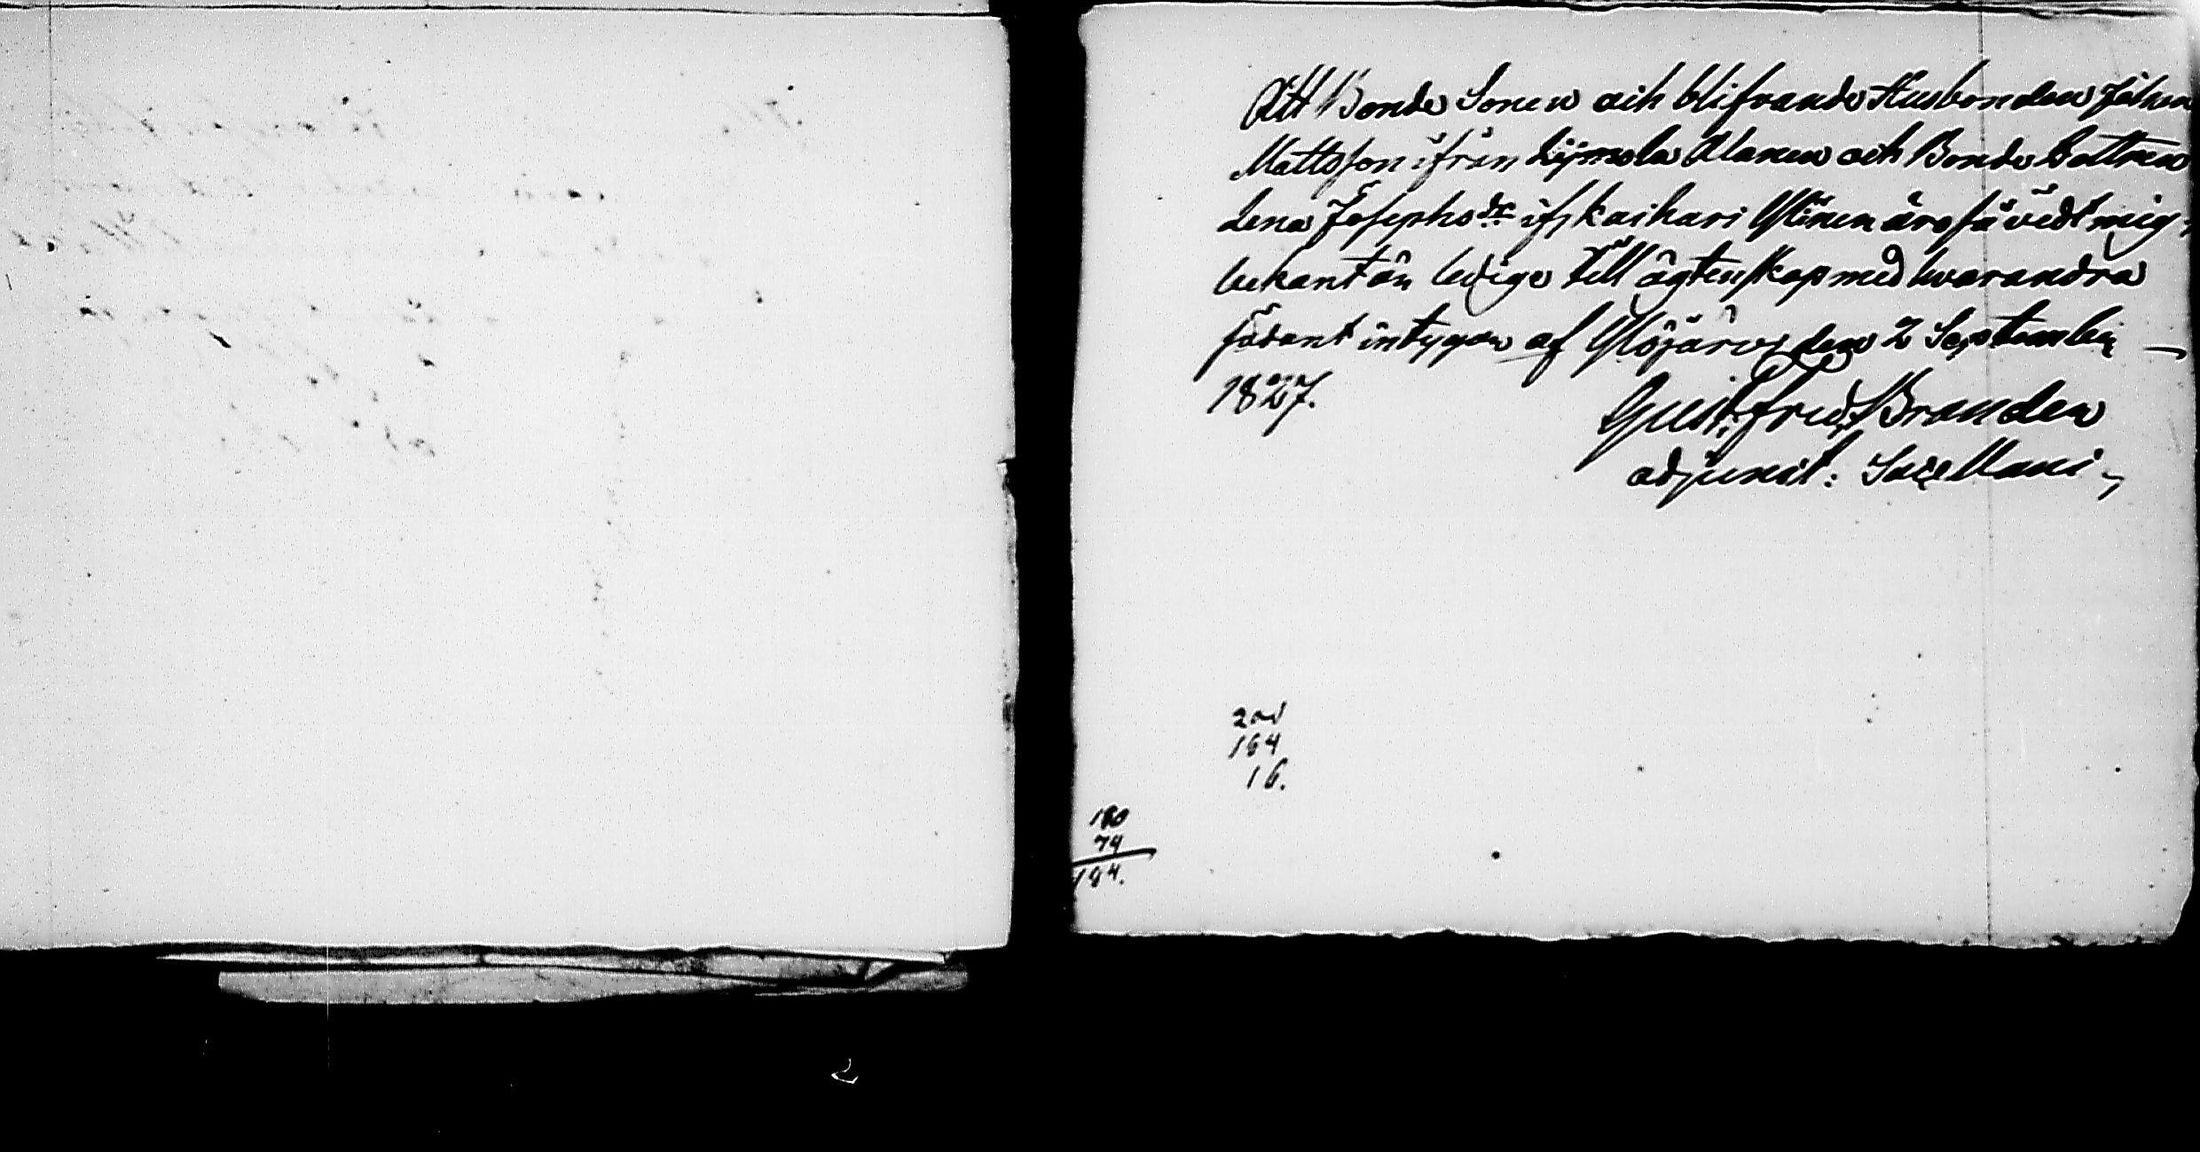 Att Bonde Sonen och blifvande Husbonden Johan
Mattsson ifrån Kÿmola Alanen och Bonde Dottren
Lena Josephsdr: ifr Kaihari Ylinen äro så vidt mig
bekant än ledige till ägtenskap med hvarandra
sådant intygar af Ylöjärvj den 2 September
1827.
Gust: Fried: Branden
adjunct: Sacellani
164
16.
180
74
184.
2